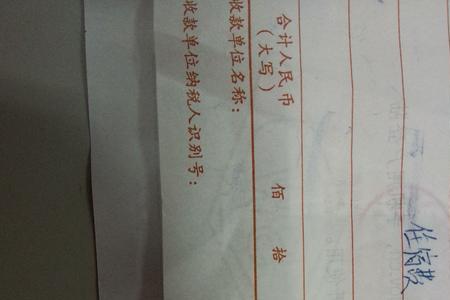 住宿费
合计人民币
（大写） 佰 拾
收款单位名称：
收款单位纳税人识别号：